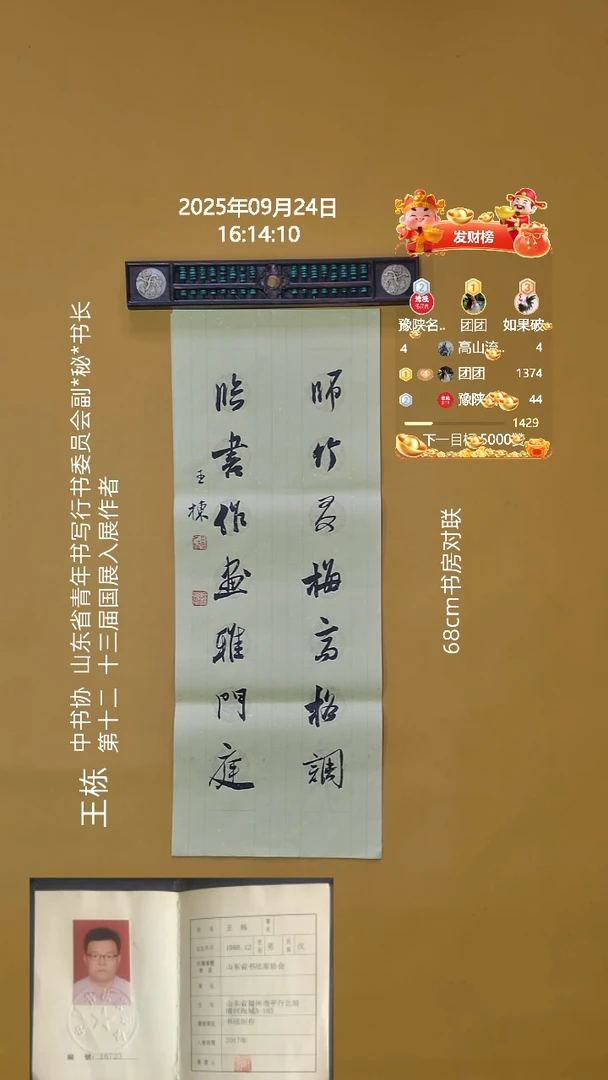 2025年09月24日
16:14:10
发财榜
2
1
3
豫陕名..
团团
如果破
4 高山流.. 4
1 团团 1374
2 豫陕 44
1429
下一目标:5000
師竹友梅高格調
臨書作畫雅門庭
王棟
68cm书房对联
王栋
中书协 山东省青年书写行书委员会副*秘*书长
第十二 十三届国展入展作者
王栋
1988.12
男
汉
山东省书法家协会
书法创作
2017年
编 号: 16723